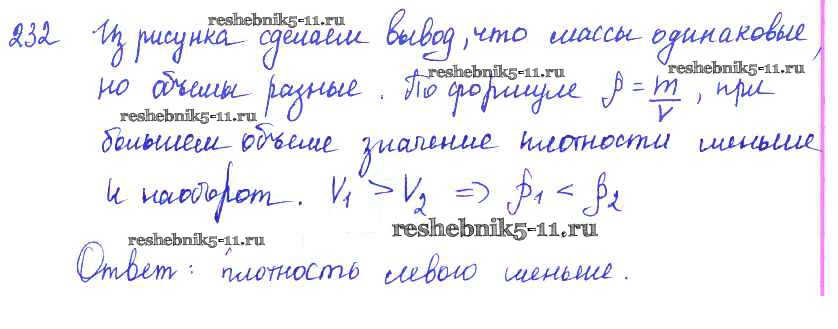 reshebnik5-11.ru
232 Из рисунка сделаем вывод, что массы одинаковые,
reshebnik5-11.ru reshebnik5-11.ru
но объемы разные. По формуле ρ = m/V, при
reshebnik5-11.ru
большем объеме значение плотности меньше
и наоборот. V₁ > V₂ => ρ₁ < ρ₂
reshebnik5-11.ru reshebnik5-11.ru
Ответ: плотность левого меньше.